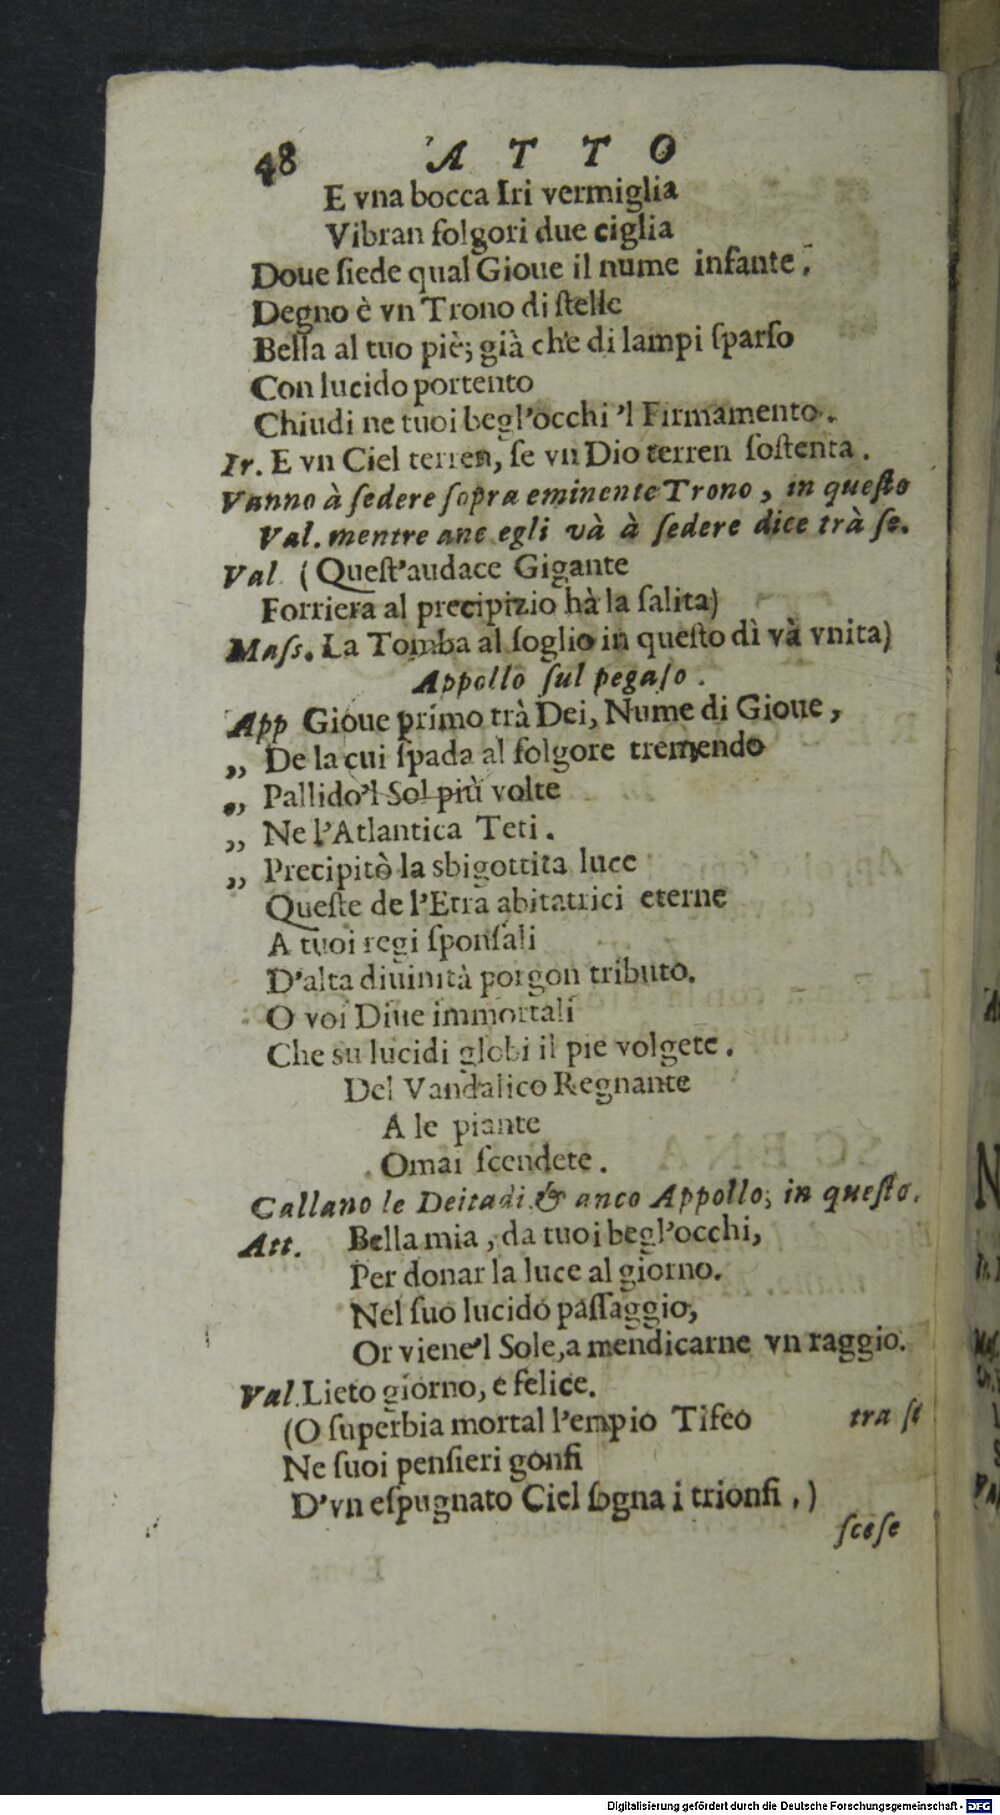 48 ATTO
E vna bocca Iri vermiglia
Vibran folgori due ciglia
Doue ſiede qual Gioue il nume infante.
Degno è vn Trono di ſtelle
Bella al tuo piè; già che di lampi ſparſo
Con lucido portento
Chiudi ne tuoi begl'occhi 'l Firmamento.
Ir. E vn Ciel terren, ſe vn Dio terren ſoſtenta.
Vanno à ſedere ſopra eminente Trono, in queſto
Val. mentre anc egli và à ſedere dice trà ſe.
Val. (Queſt'audace Gigante
Forriera al precipizio hà la ſalita)
Maſs. La Tomba al ſoglio in queſto dì và vnita)
Appollo ſul pegaſo.
App Gioue primo trà Dei, Nume di Gioue,
„ De la cui ſpada al folgore tremendo
„ Pallido'l Sol più volte
„ Ne l'Atlantica Teti.
„ Precipitò la sbigottita luce
Queſte de l'Etra abitatrici eterne
A tuoi regi ſponſali
D'alta diuinità porgon tributo.
O voi Diue immortali
Che su lucidi globi il pie volgete.
Del Vandalico Regnante
A le piante
Omai ſcendete.
Callano le Deitadi & anco Appollo; in queſto.
Att. Bella mia, da tuoi begl'occhi,
Per donar la luce al giorno.
Nel ſuo lucido paſſaggio,
Or viene'l Sole, a mendicarne vn raggio.
Val. Lieto giorno, e felice.
(O ſuperbia mortal l'empio Tifeo tra ſe
Ne ſuoi penſieri gonfi
D'vn eſpugnato Ciel ſogna i trionfi.)
ſceſe
Digitalisierung gefördert durch die Deutsche Forschungsgemeinschaft - DFG